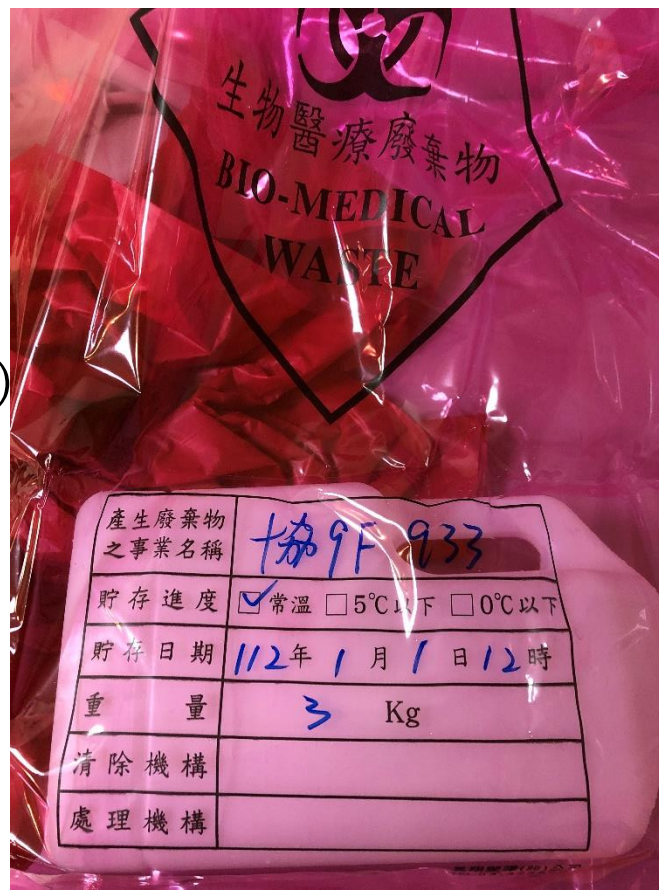 生物醫療廢棄物
BIO-MEDICAL
WASTE
產生廢棄物之事業名稱 協9F 933
貯存進度 ☑常溫 □5℃以下 □0℃以下
貯存日期 112年1月1日12時
重量 3 Kg
清除機構
處理機構